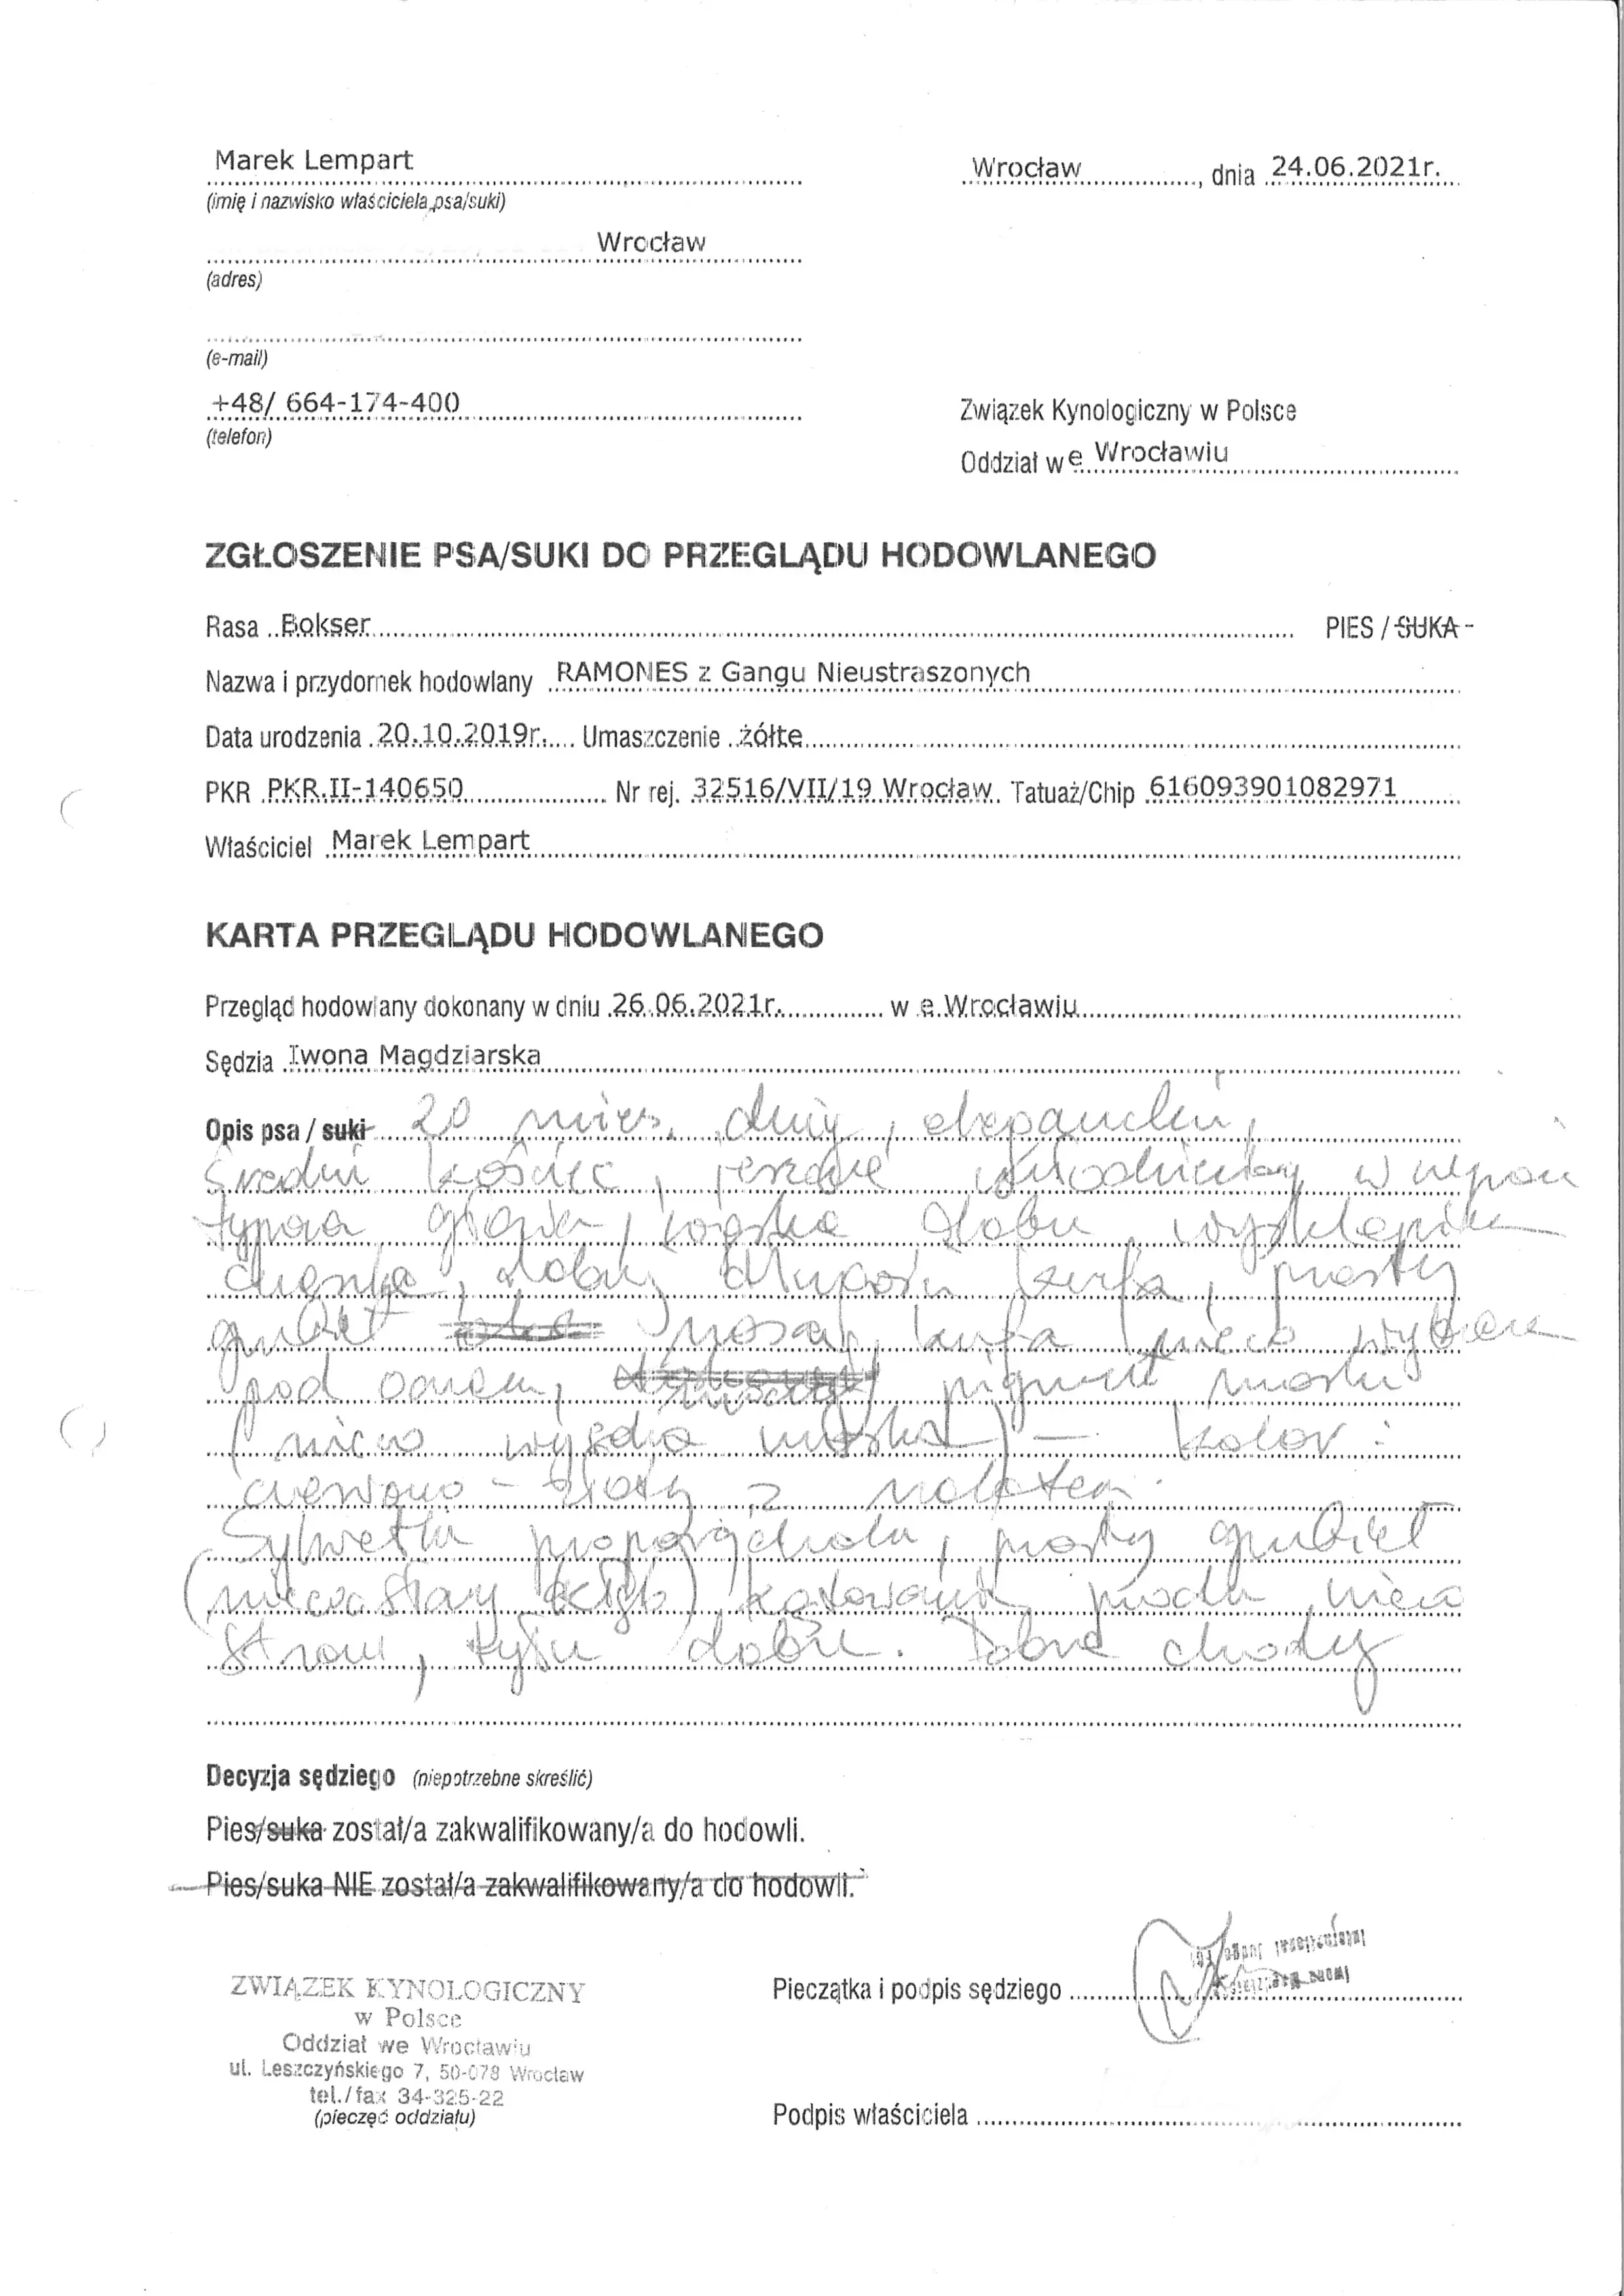 Marek Lempart
(imię i nazwisko właściciela psa/suki)
Wrocław, dnia 24.06.2021r.
Wrocław
(adres)
(e-mail)
+48/ 664-174-400
(telefon)
Związek Kynologiczny w Polsce
Oddział we Wrocławiu
ZGŁOSZENIE PSA/SUKI DO PRZEGLĄDU HODOWLANEGO
Rasa Bokser PIES / SUKA
Nazwa i przydomek hodowlany RAMONES z Gangu Nieustraszonych
Data urodzenia 20.10.2019r. Umaszczenie żółte
PKR PKR.II-140650 Nr rej. 32516/VII/19 Wrocław Tatuaż/Chip 616093901082971
Właściciel Marek Lempart
KARTA PRZEGLĄDU HODOWLANEGO
Przegląd hodowlany dokonany w dniu 26.06.2021r. w e Wrocławiu
Sędzia Iwona Magdziarska
Opis psa / suki 20 mies. duży, elegancki,
średni kościec, jeszcze młodzieńczy w
typowa głowa, dobrze
dobra długość kufa, prosty
grzbiet nosa, kufa nieco
pod okiem, pigment
(nieco maska) – kolor:
czerwono-złoty z nalotem.
Sylwetka proporcjonalna, prosty grzbiet
kątowanie przodu nieco
strome, tyłu dobre. Dobre chody
Decyzja sędziego (niepotrzebne skreślić)
Pies/suka został/a zakwalifikowany/a do hodowli.
Pies/suka NIE został/a zakwalifikowany/a do hodowli.
ZWIĄZEK KYNOLOGICZNY
w Polsce
Oddział we Wrocławiu
ul. Leszczyńskiego 7, 50-078 Wrocław
tel./fax 34-325-22
(pieczęć oddziału)
Pieczątka i podpis sędziego
Podpis właściciela